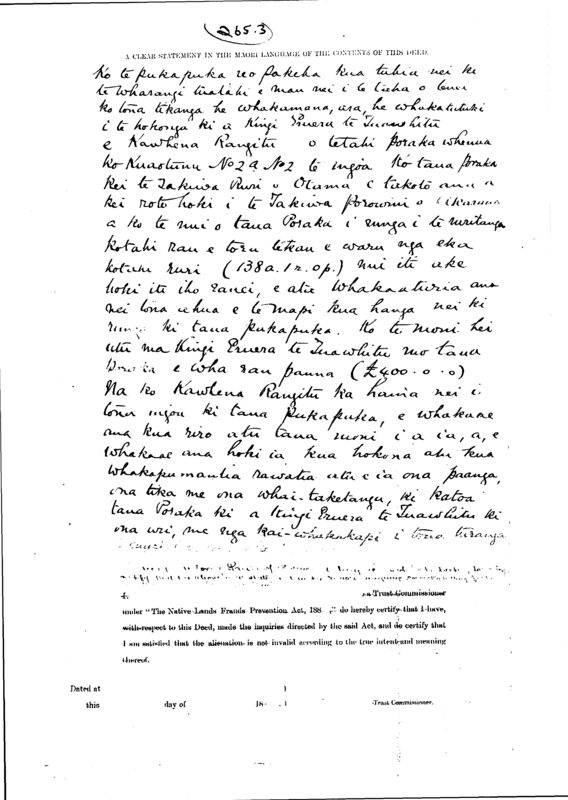 265.3
A CLEAR STATEMENT IN THE MAORI LANGUAGE OF THE CONTENTS OF THIS DEED.
Ko te pukapuka reo pakeha kua tuhia nei ki
te wharangi tuatahi e mau nei i te taha o tenei
ko tona tikanga he whakamana, ara, he whakatutuki
i te hokonga ki a Kingi Eruera te Tuawhitu
e Kawhena Rangitu o tetahi poraka whenua
ko Kuaotunu No 2a No 2 te ingoa Ko taua poraka
kei te Takiwa Ruri o Otama e takoto ana a
kei roto hoki i te Takiwa Porowini o
a ko te nui o taua Poraka i runga i te ruritanga
kotahi rau e toru tekau e waru nga eka
kotahi ruri (138a.1r.0p.) nui ake
hoki iti iho ranei, e ata whakaaturia ana
nei tona ahua e te mapi kua hanga nei ki
runga ki taua pukapuka. Ko te moni hei
utu ma Kingi Eruera te Tuawhitu mo taua
e wha rau pauna (£400.0.0)
Na ko Kawhena Rangitu ka haina nei i
tona ingoa ki taua pukapuka, e whakaae
ana kua riro atu taua moni i a ia, a, e
whakaae ana hoki ia kua hokona atu kua
whakapumautia rawatia atu e ia ona paanga,
ona tika me ona whai-taketanga, ki katoa
taua Poraka ki a Kingi Eruera te Tuawhitu ki
ona uri, me nga kai-whakakapi i tona turanga
I,
a Trust Commissioner
under "The Native Lands Frauds Prevention Act, 188 ," do hereby certify that I have,
with respect to this Deed, made the inquiries directed by the said Act, and do certify that
I am satisfied that the alienation is not invalid according to the true intent and meaning
thereof.
Dated at
this day of 18
Trust Commissioner.